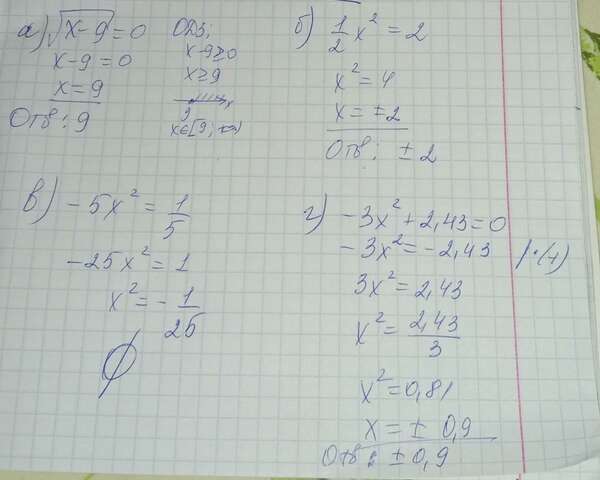 а) √x-9 = 0
x-9 = 0
x = 9
Отв: 9
ОДЗ:
x-9≥0
x≥9
9 x
x∈[9; +∞)
б) 1/2 x² = 2
x² = 4
x = ±2
Отв: ±2
в) -5x² = 1/5
-25x² = 1
x² = - 1/25
∅
г) -3x² + 2,43 = 0
-3x² = -2,43 /·(-1)
3x² = 2,43
x² = 2,43/3
x² = 0,81
x = ± 0,9
Отв: ±0,9